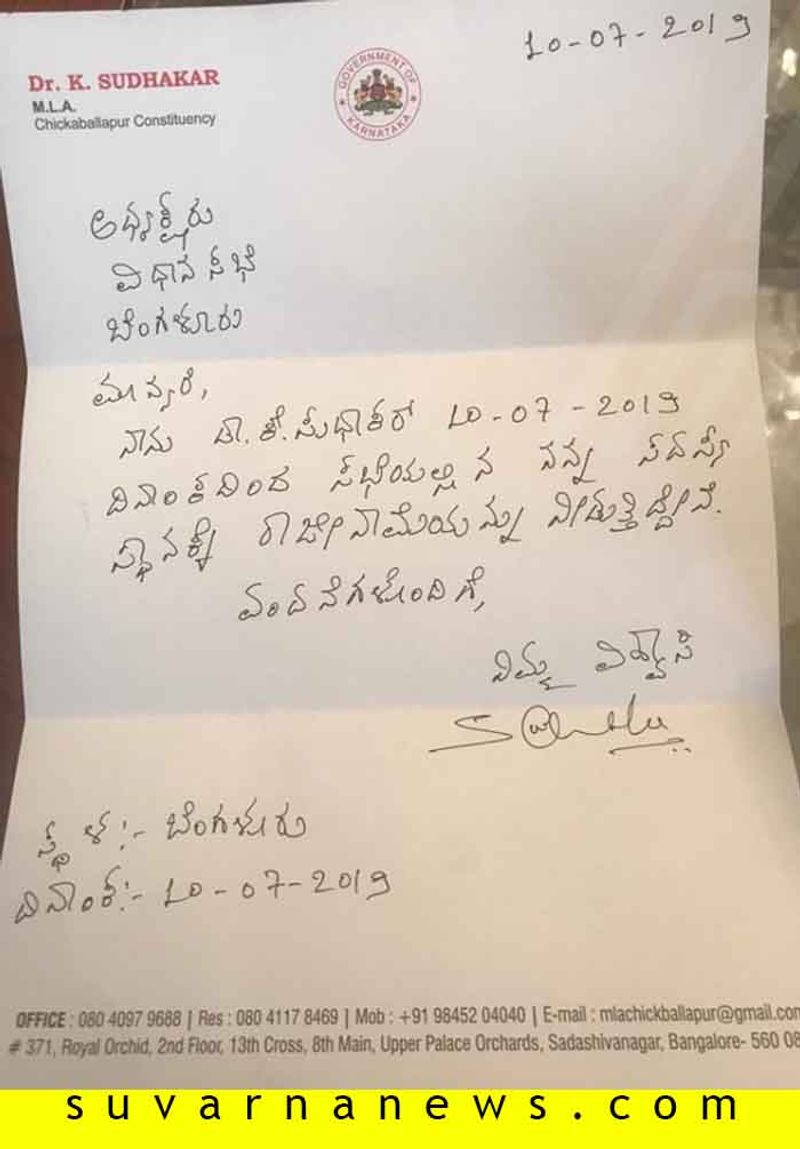 10-07-2019
Dr. K. SUDHAKAR
M.L.A.
Chickaballapur Constituency
GOVERNMENT OF KARNATAKA
ಅಧ್ಯಕ್ಷರು
ವಿಧಾನ ಸಭೆ
ಬೆಂಗಳೂರು
ಮಾನ್ಯರೆ,
ನಾನು ಡಾ. ಕೆ. ಸುಧಾಕರ್ 10-07-2019
ದಿನಾಂಕದಿಂದ ಸಭೆಯಲ್ಲಿನ ನನ್ನ ಸದಸ್ಯ
ಸ್ಥಾನಕ್ಕೆ ರಾಜೀನಾಮೆಯನ್ನು ನೀಡುತ್ತಿದ್ದೇನೆ.
ವಂದನೆಗಳೊಂದಿಗೆ,
ನಿಮ್ಮ ವಿಶ್ವಾಸಿ
ಸ್ಥಳ:- ಬೆಂಗಳೂರು
ದಿನಾಂಕ:- 10-07-2019
OFFICE : 080 4097 9688 | Res : 080 4117 8469 | Mob : +91 98452 04040 | E-mail : mlachickballapur@gmail.com
# 371, Royal Orchid, 2nd Floor, 13th Cross, 8th Main, Upper Palace Orchards, Sadashivanagar, Bangalore- 560 08
suvarnanews.com